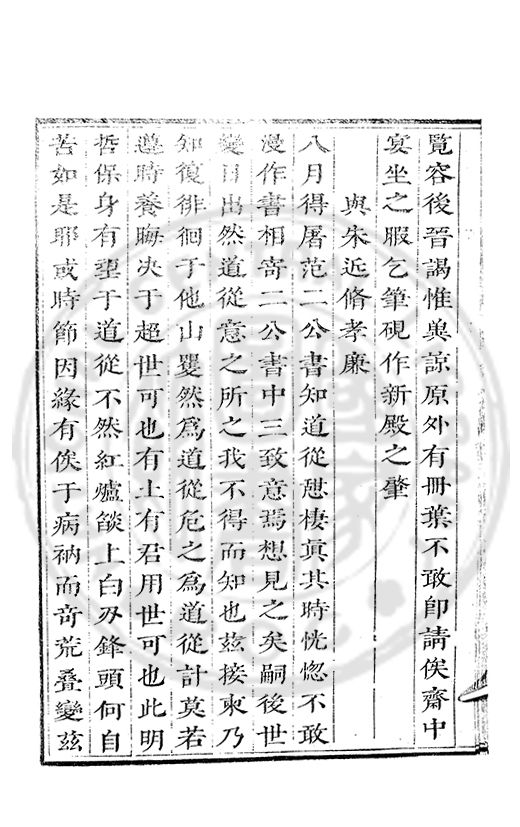 覽容後晉謁惟與諒原外有冊葉不敢卽請俟齋中
宴坐之暇乞筆硯作新殿之肇
與朱近脩孝廉
八月得屠范二公書知道從憇棲眞其時恍惚不敢
漫作書相寄二公書中三致意焉想見之矣嗣後世
變日出然道從意之所之我不得而知也兹接柬乃
知復徘徊于他山瞿然爲道從危之爲道從計莫若
遵時養晦决于超世可也有土有君用世可也此明
哲保身有望于道從不然紅爐燄上白刃鋒頭何自
苦如是耶或時節因緣有俟于病衲而竒荒叠變兹